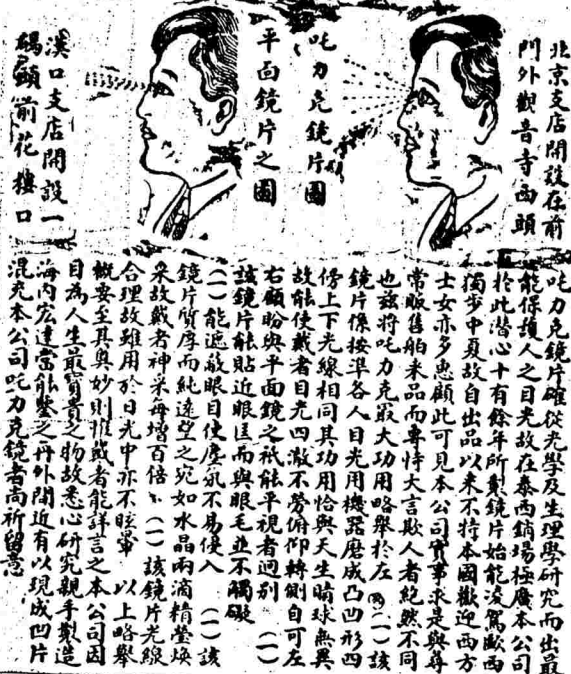 北京支店開設在前
門外觀音寺西頭
吒力克鏡片圖
平面鏡片之圖
漢口支店開設一
碼頭前花樓口
吒力克鏡片確從光學及生理學研究而出最
能保護人之目光故在泰西銷場極廣本公司
於此潛心十有餘年所製鏡片始能凌駕歐西
獨步中夏故自出品以來不特本國歡迎西方
士女亦多惠顧此可見本公司實事求是與尋
常販售舶來品而專恃大言欺人者絕然不同
也茲將吒力克最大功用略舉於左 (一)該
鏡片係按準各人目光用機器磨成凸凹形四
傍上下光線相同其功用恰與天生睛球無異
故能使戴者目光四澈不勞俯仰轉側自可左
右顧盼與平面鏡之祇能平視者迥別 (一)
該鏡片能貼近眼匡而與眼毛並不觸礙
(一)能遮蔽眼目使塵氛不易侵入 (一)該
鏡片質厚而純遠望之宛如水晶兩滴精瑩煥
采故戴者神采每增百倍 (一)該鏡片光線
合理故雖用於日光中亦不眩暈 以上略舉
概要至其奥妙則惟戴者能詳言之本公司因
目為人生最寳貴之物故悉心研究親手製造
海内宏達當能鑒之再外間近有以現成凹片
混充本公司吒力克鏡者尚祈留意